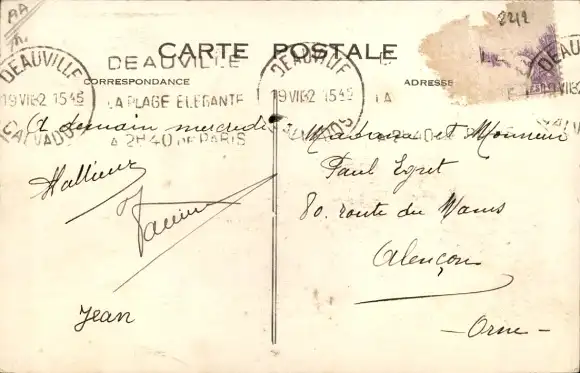 AA
2212
CARTE POSTALE
CORRESPONDANCE
ADRESSE
DEAUVILLE
19 VII 32 15 45
CALVADOS
DEAUVILLE
LA PLAGE ELEGANTE
A 2H40 DE PARIS
DEAUVILLE
19 VII 32 15 45
CALVADOS
LA
DEAUVILLE
A demain mercredi
Jean
Madame et Monsieur
Paul Egret
80. route du Mans
Alençon
- Orne -